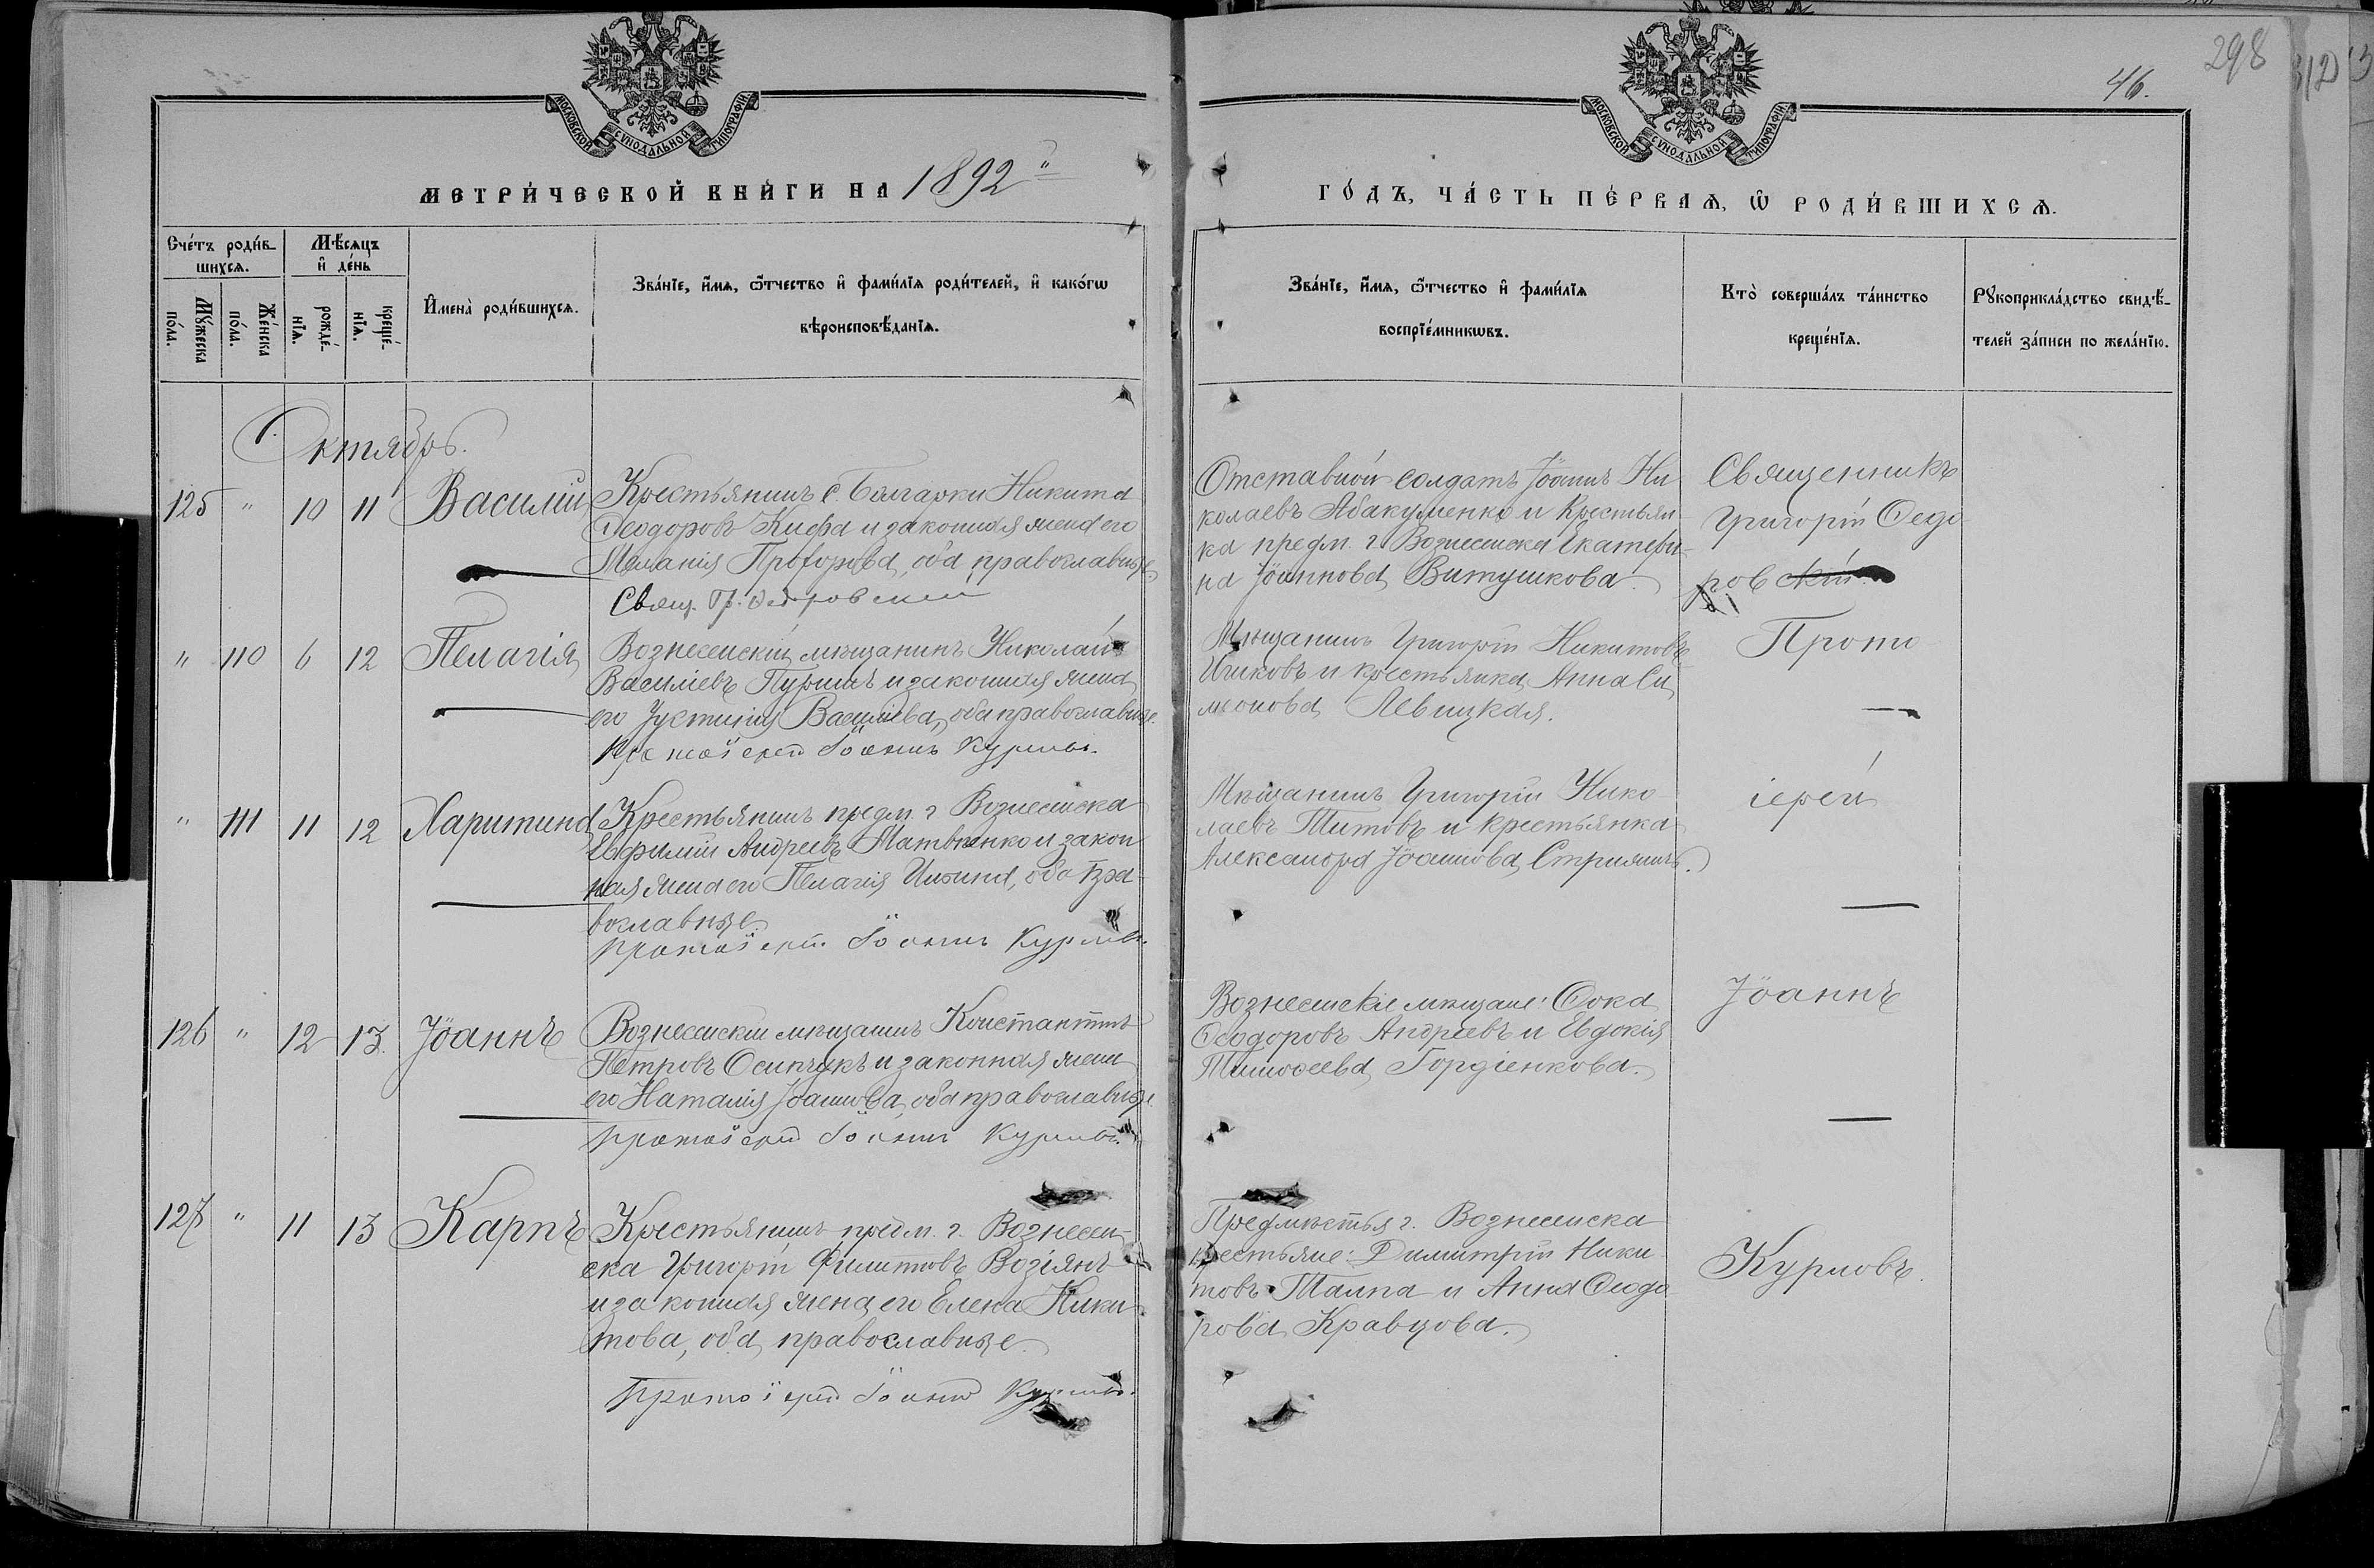 298
46.
МОСКОВСКОЙ СѴНОДАЛЬНОЙ ТИПОГРАФІИ
МОСКОВСКОЙ СѴНОДАЛЬНОЙ ТИПОГРАФІИ
МЕТРИ́ЧЕСКОЙ КНИ́ГИ НА 1892
ГО́ДЪ, ЧА́СТЬ ПЕ́РВАѦ, Ѽ РОДИ́ВШИХСѦ.
Сче́тъ роди́в-
шихсѧ.
Мѣ́сѧцъ
и҆ де́нь
Мꙋ́жеска
по́ла.
Же́нска
по́ла.
рожде́-
нїѧ.
креще́-
нїѧ.
И҆мена̀ роди́вшихсѧ.
Зва́нїе, и҆́мѧ, ѻ҆́тчество и҆ фами́лїѧ роди́телей, и҆ како́гѡ
вѣроисповѣ́данїѧ.
Зва́нїе, и҆́мѧ, ѻ҆́тчество и҆ фами́лїѧ
воспрїе́мникѡвъ.
Кто̀ соверша́лъ та́инство
креще́нїѧ.
Рꙋкоприкла́дство свидѣ́-
телей за́писи по жела́нїю.
Октябрь.
125 " 10 11 Василій
Крестьянинъ с. Болгарки Никита
Ѳеодоровъ Кифа и законная жена его
Меланія Прохорова, оба православные
Свящ. Гр. Ѳедоровскій
Отставной солдатъ Іоаннъ Ни-
колаевъ Абакуменко и крестьян-
ка предм. г. Вознесенска Екатери-
на Іоаннова Витушкова.
Священникъ
Григорій Ѳедо-
ровскій
" 110 6 12 Пелагія
Вознесенскій мѣщанинъ Николай
Василіевъ Пуринъ и законная жена
его Іустинія Василіева, оба православные.
Протоіерей Іоаннъ Курловъ.
Мѣщанинъ Григорій Никитовъ
и крестьянка Анна Си-
меонова Левицкая.
Прото
" 111 11 12 Харитина
Крестьянинъ предм. г. Вознесенска
Евфимій Андреевъ Матвѣенко и закон-
ная жена его Пелагія Ильина, оба пра-
вославные.
Протоіерей Іоаннъ Курловъ.
Мѣщанинъ Григорій Нико-
лаевъ Титовъ и крестьянка
Александра Іоаннова
іерей
126 " 12 13. Іоаннъ
Вознесенскій мѣщанинъ Константинъ
Петровъ Осипчукъ и законная жена
его Наталія Іоаннова, оба православные
Протоіерей Іоаннъ Курловъ.
Вознесенскіе мѣщане: Ѳока
Ѳеодоровъ Андреевъ и Евдокія
Тимоѳеева Гордіенкова.
Іоаннъ
127 " 11 13 Карпъ
Крестьянинъ предм. г. Вознесен-
ска Григорій Филиповъ Возіянъ
и законная жена его Елена Ники-
това, оба православные.
Протоіерей Іоаннъ Курловъ.
Предмѣстья г. Вознесенска
крестьяне: Димитрій Ники-
товъ и Анна Ѳеодо-
рова Кравцова.
Курловъ.